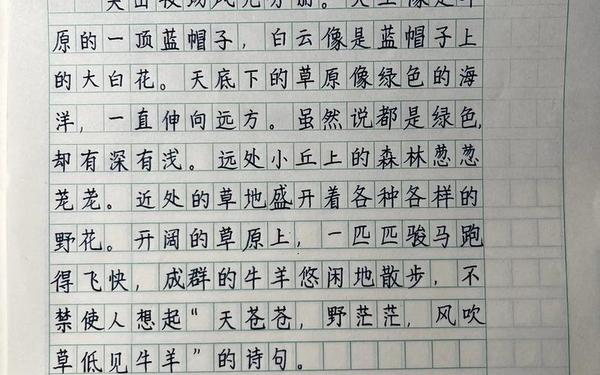 原的一顶蓝帽子，白云像是蓝帽子上
的大白花。天底下的草原像绿色的海
洋，一直伸向远方。虽然说都是绿色，
却有深有浅。远处小丘上的森林葱葱
茏茏。近处的草地盛开着各种各样的
野花。开阔的草原上，一匹匹骏马跑
得飞快，成群的牛羊悠闲地散步，不
禁使人想起“天苍苍，野茫茫，风吹
草低见牛羊”的诗句。